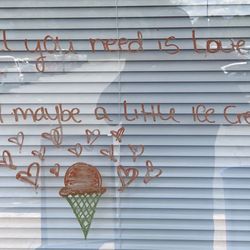 l you need is Love
maybe a little Ice Cre